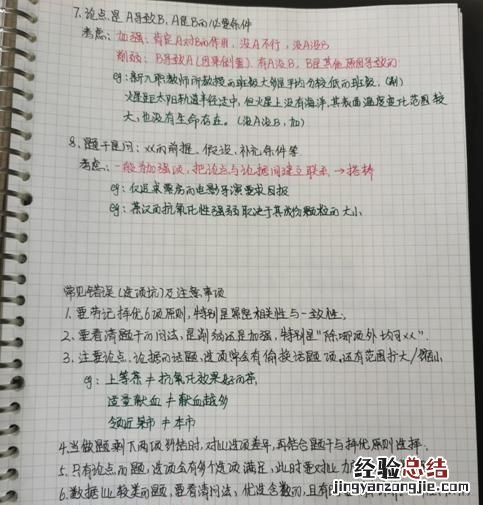 7. 论点是 A导致B, A是B的必要条件
考点: 加强: 肯定A对B的作用, 没A不行, 没A没B
削弱: B导致A (因果倒置), 有A没B, B是其他原因导致的
eg: 新入职教师所教授的班级大多是平均分较低的班级. (削)
火星距太阳轨道半径适中, 但火星上没有海洋, 其表面温度变化范围较
大, 也没有生命存在. (没A没B, 加)
8. 题干提问: xx的前提、假设、补充条件等
考点: 一般为加强项, 把论点与论据间建立联系 → 搭桥
eg: 仅追求票房的电影导演要求自报
eg: 茶汉的抗氧化性强弱取决于其成份颗粒的大小
常见错误(选项坑)及注意事项
1. 要牢记择优6项原则, 特别是紧密相关性与一致性.
2. 要看清题干的问法, 是削弱还是加强, 特别是"除哪项外均可xx".
3. 注意论点、论据的话题, 选项常会有偷换话题项, 还有范围扩大/缩小.
eg: 上等茶 ≠ 抗氧化效果好的茶
适量献血 ≠ 献血越多
邻近某市 ≠ 本市
4. 当做题剩下两项纠结时, 对比选项差异, 再结合题干与择优原则选择.
5. 只有论点的题, 选项会有多个选项满足, 此时要对比力
6. 数据比较类的题, 要看清问法, 优选含数的, 且有
经验总结
jingyanzongjie.com